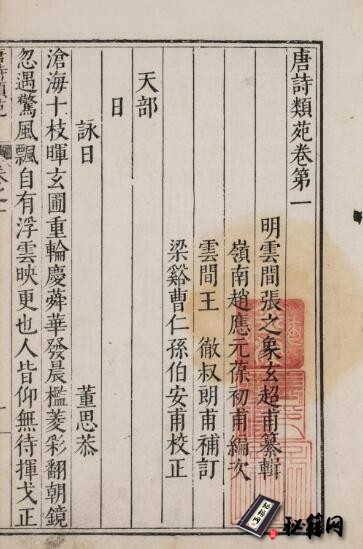 唐詩類苑卷第一
明雲間張之象玄超甫纂輯
嶺南趙應元葆初甫編次
雲間王徹叔朗甫補訂
梁谿曹仁孫伯安甫校正
天部
日
詠日 董思恭
滄海十枝暉玄圃重輪慶蕣華發晨檻菱彩翻朝鏡
忽遇驚風飄自有浮雲映更也人皆仰無待揮戈正
唐詩類苑 卷之一
秘籍网